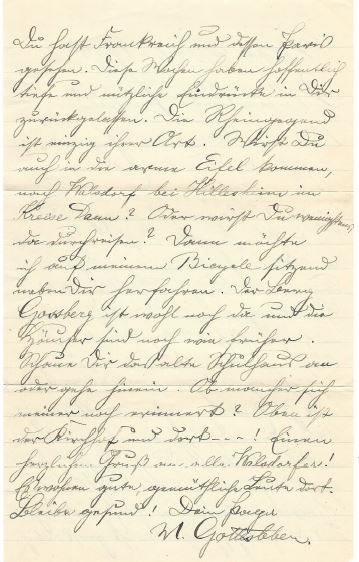 Du hast Frankreich und dessen Paris
gesehen. Diese Wochen haben hoffentlich
tiefe und nützliche Eindrücke in Dir
zurückgelassen. Die Rheingegend
ist einzig ihrer Art. Wirst Du
auch in die arme Eifel kommen,
nach Walsdorf bei Hillesheim im
Kreise Daun? Oder wirst Du wenigstens
da durchreisen? Dann möchte
ich auf meinem Bicycle sitzend
neben Dir herfahren. Der Berg
Gossberg ist wohl noch da und die
Häuser sind noch wie früher.
Schaue Dir das alte Schulhaus an
oder gehe hinein. Ob mancher sich
meiner noch erinnert? Oben ist
der Kirchhof und dort---! Einen
herzlichen Gruß an alle Walsdorfer!
Es wohnen gute, gemütliche Leute dort.
Bleibe gesund! Dein
M. Gottlobben.